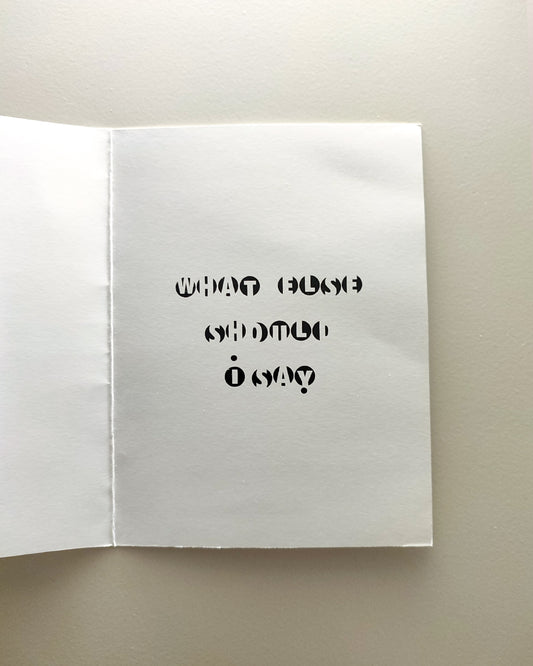 WHAT ELSE
SHOULD
i SAY